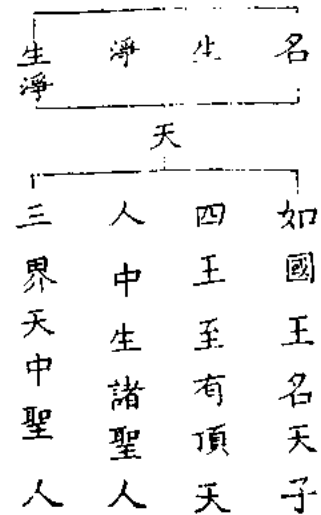 名
生
淨
生淨
天
如國王名天子
四王至有頂天
人中生諸聖人
三界天中聖人